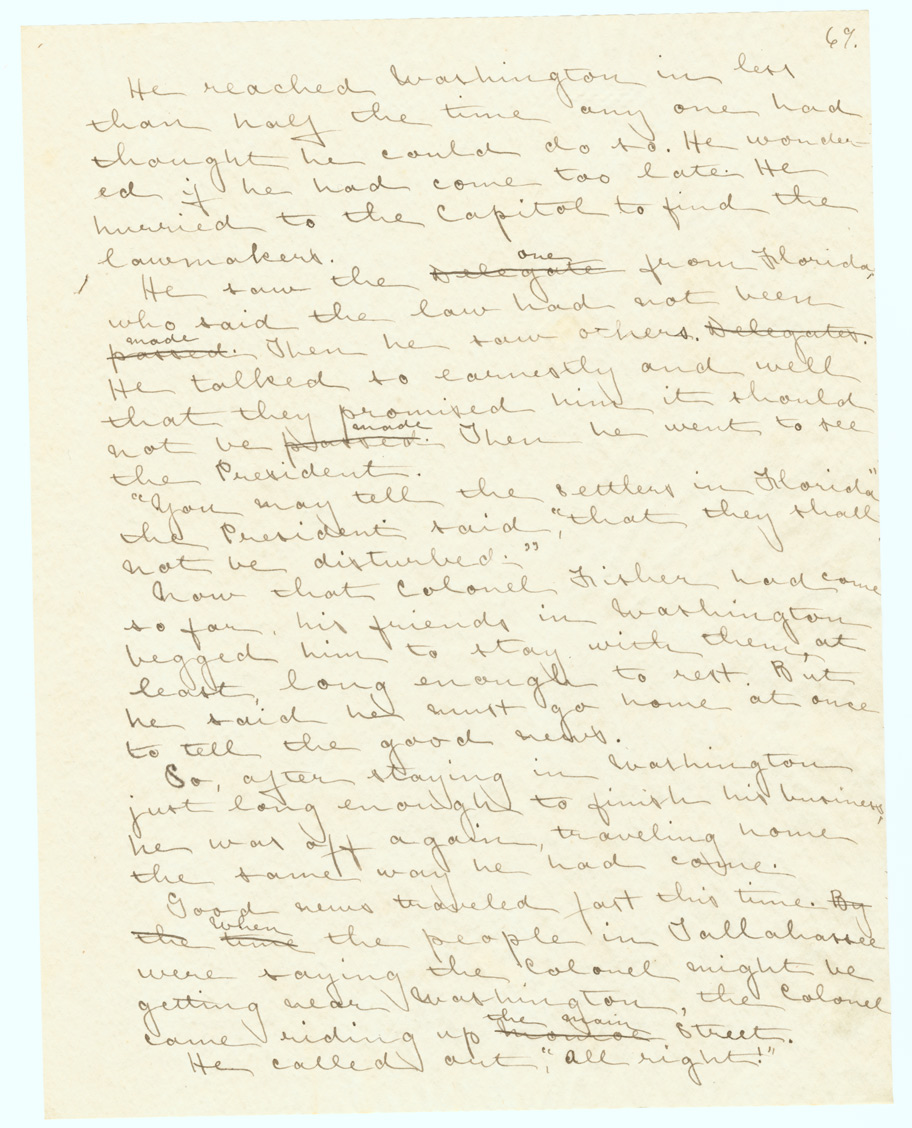 69.
He reached Washington in less
than half the time any one had
thought he could do so. He wonder-
ed if he had come too late. He
hurried to the Capitol to find the
lawmakers.
one
He saw the Delegate from Florida,
who said the law had not been
made
passed. Then he saw others. Delegates.
He talked so earnestly and well
that they promised him it should
made
not be passed. Then he went to see
the President.
"You may tell the settlers in Florida"
the President said, "that they shall
not be disturbed."
Now that Colonel Fisher had come
so far, his friends in Washington
begged him to stay with them, at
least, long enough to rest. But
he said he must go home at once
to tell the good news.
So, after staying in Washington
just long enough to finish his business,
he was off again, traveling home
the same way he had come.
Good news traveled fast this time. By
when
the time the people in Tallahassee
were saying the Colonel might be
getting near Washington, the Colonel
the main
came riding up Monroe Street.
He called out, "All right!"